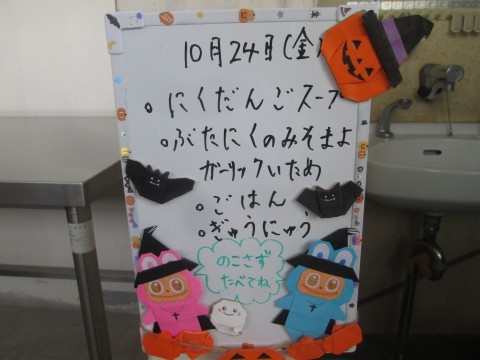 10月24日(金)
。にくだんごスープ
。ぶたにくのみそまよ
ガーリックいため
。ごはん
。ぎゅうにゅう
のこさず
たべてね